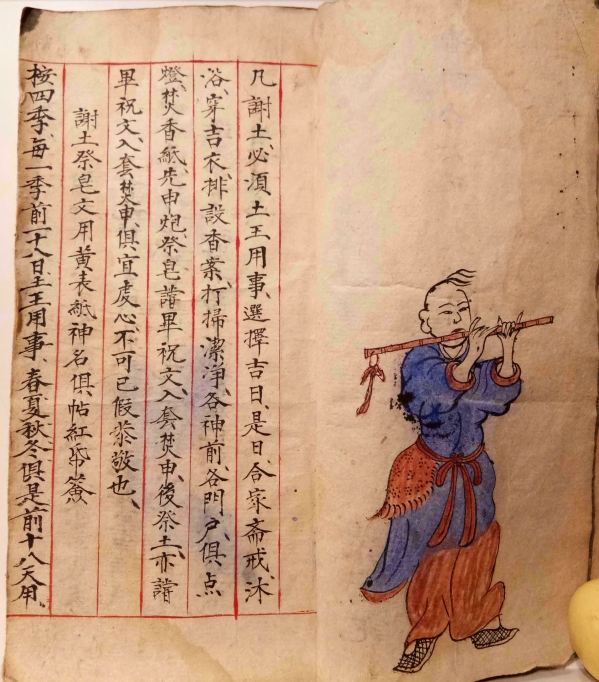 凡謝土、必須土王用事、選擇吉日、是日、合家斋戒、沐
浴、穿吉衣、排設香案、打掃潔净、各神前、各門戶、俱点
燈、焚香紙、先申炮祭皂、讀畢祝文、入套焚申、後祭土、亦讀
畢祝文、入套焚申、俱宜虔心、不可已假恭敬也、
謝土祭皂文用黄表紙神名俱帖紅帋簽
桉四季、每一季前一十八日、土王用事、春夏秋冬、俱是前十八天用、